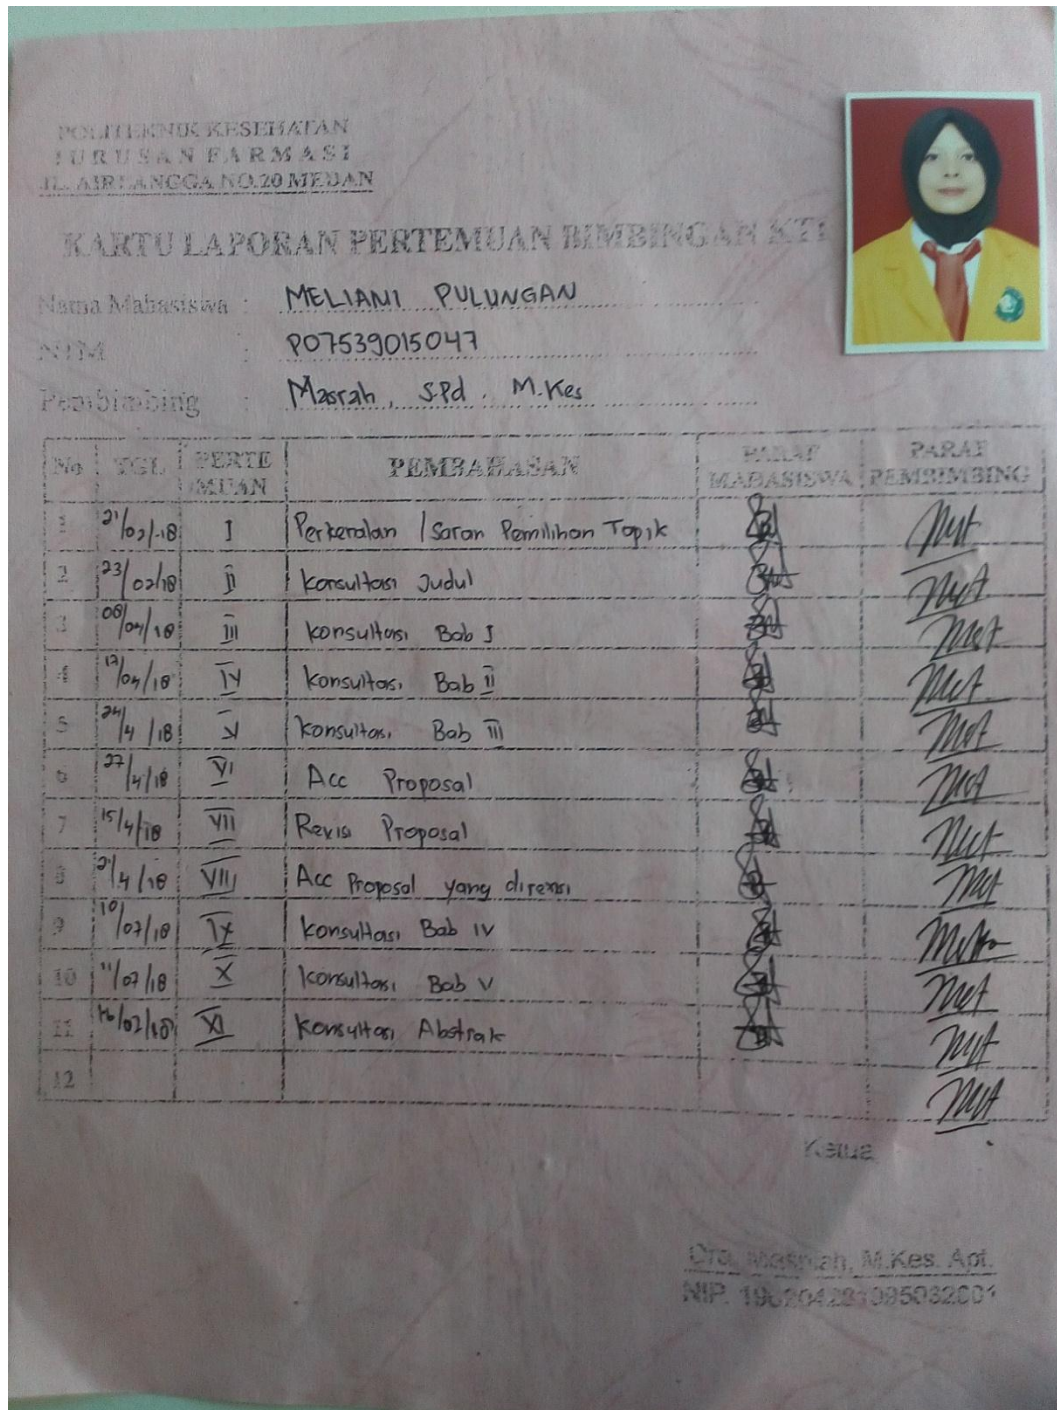 POLITEKNIK KESEHATAN
JURUSAN FARMASI
JL. AIRLANGGA NO.20 MEDAN
KARTU LAPORAN PERTEMUAN BIMBINGAN KTI
Nama Mahasiswa : MELIANI PULUNGAN
NIM : P07539015047
Pembimbing : Masrah, S.Pd. M.Kes
No TGL PERTEMUAN PEMBAHASAN PARAF MAHASISWA PARAF PEMBIMBING
1 21/02/18 I Perkenalan / Saran Pemilihan Topik
2 23/02/18 II Konsultasi Judul
3 /04/18 III Konsultasi Bab I
4 /04/18 IV Konsultasi Bab II
5 24/4/18 V Konsultasi Bab III
6 27/4/18 VI Acc Proposal
7 15/4/18 VII Revisi Proposal
8 21/4/18 VIII Acc Proposal yang direvisi
9 10/07/18 IX Konsultasi Bab IV
10 11/07/18 X Konsultasi Bab V
11 XI Konsultasi Abstrak
12
Ketua
Dra. Masniah, M.Kes. Apt.
NIP.